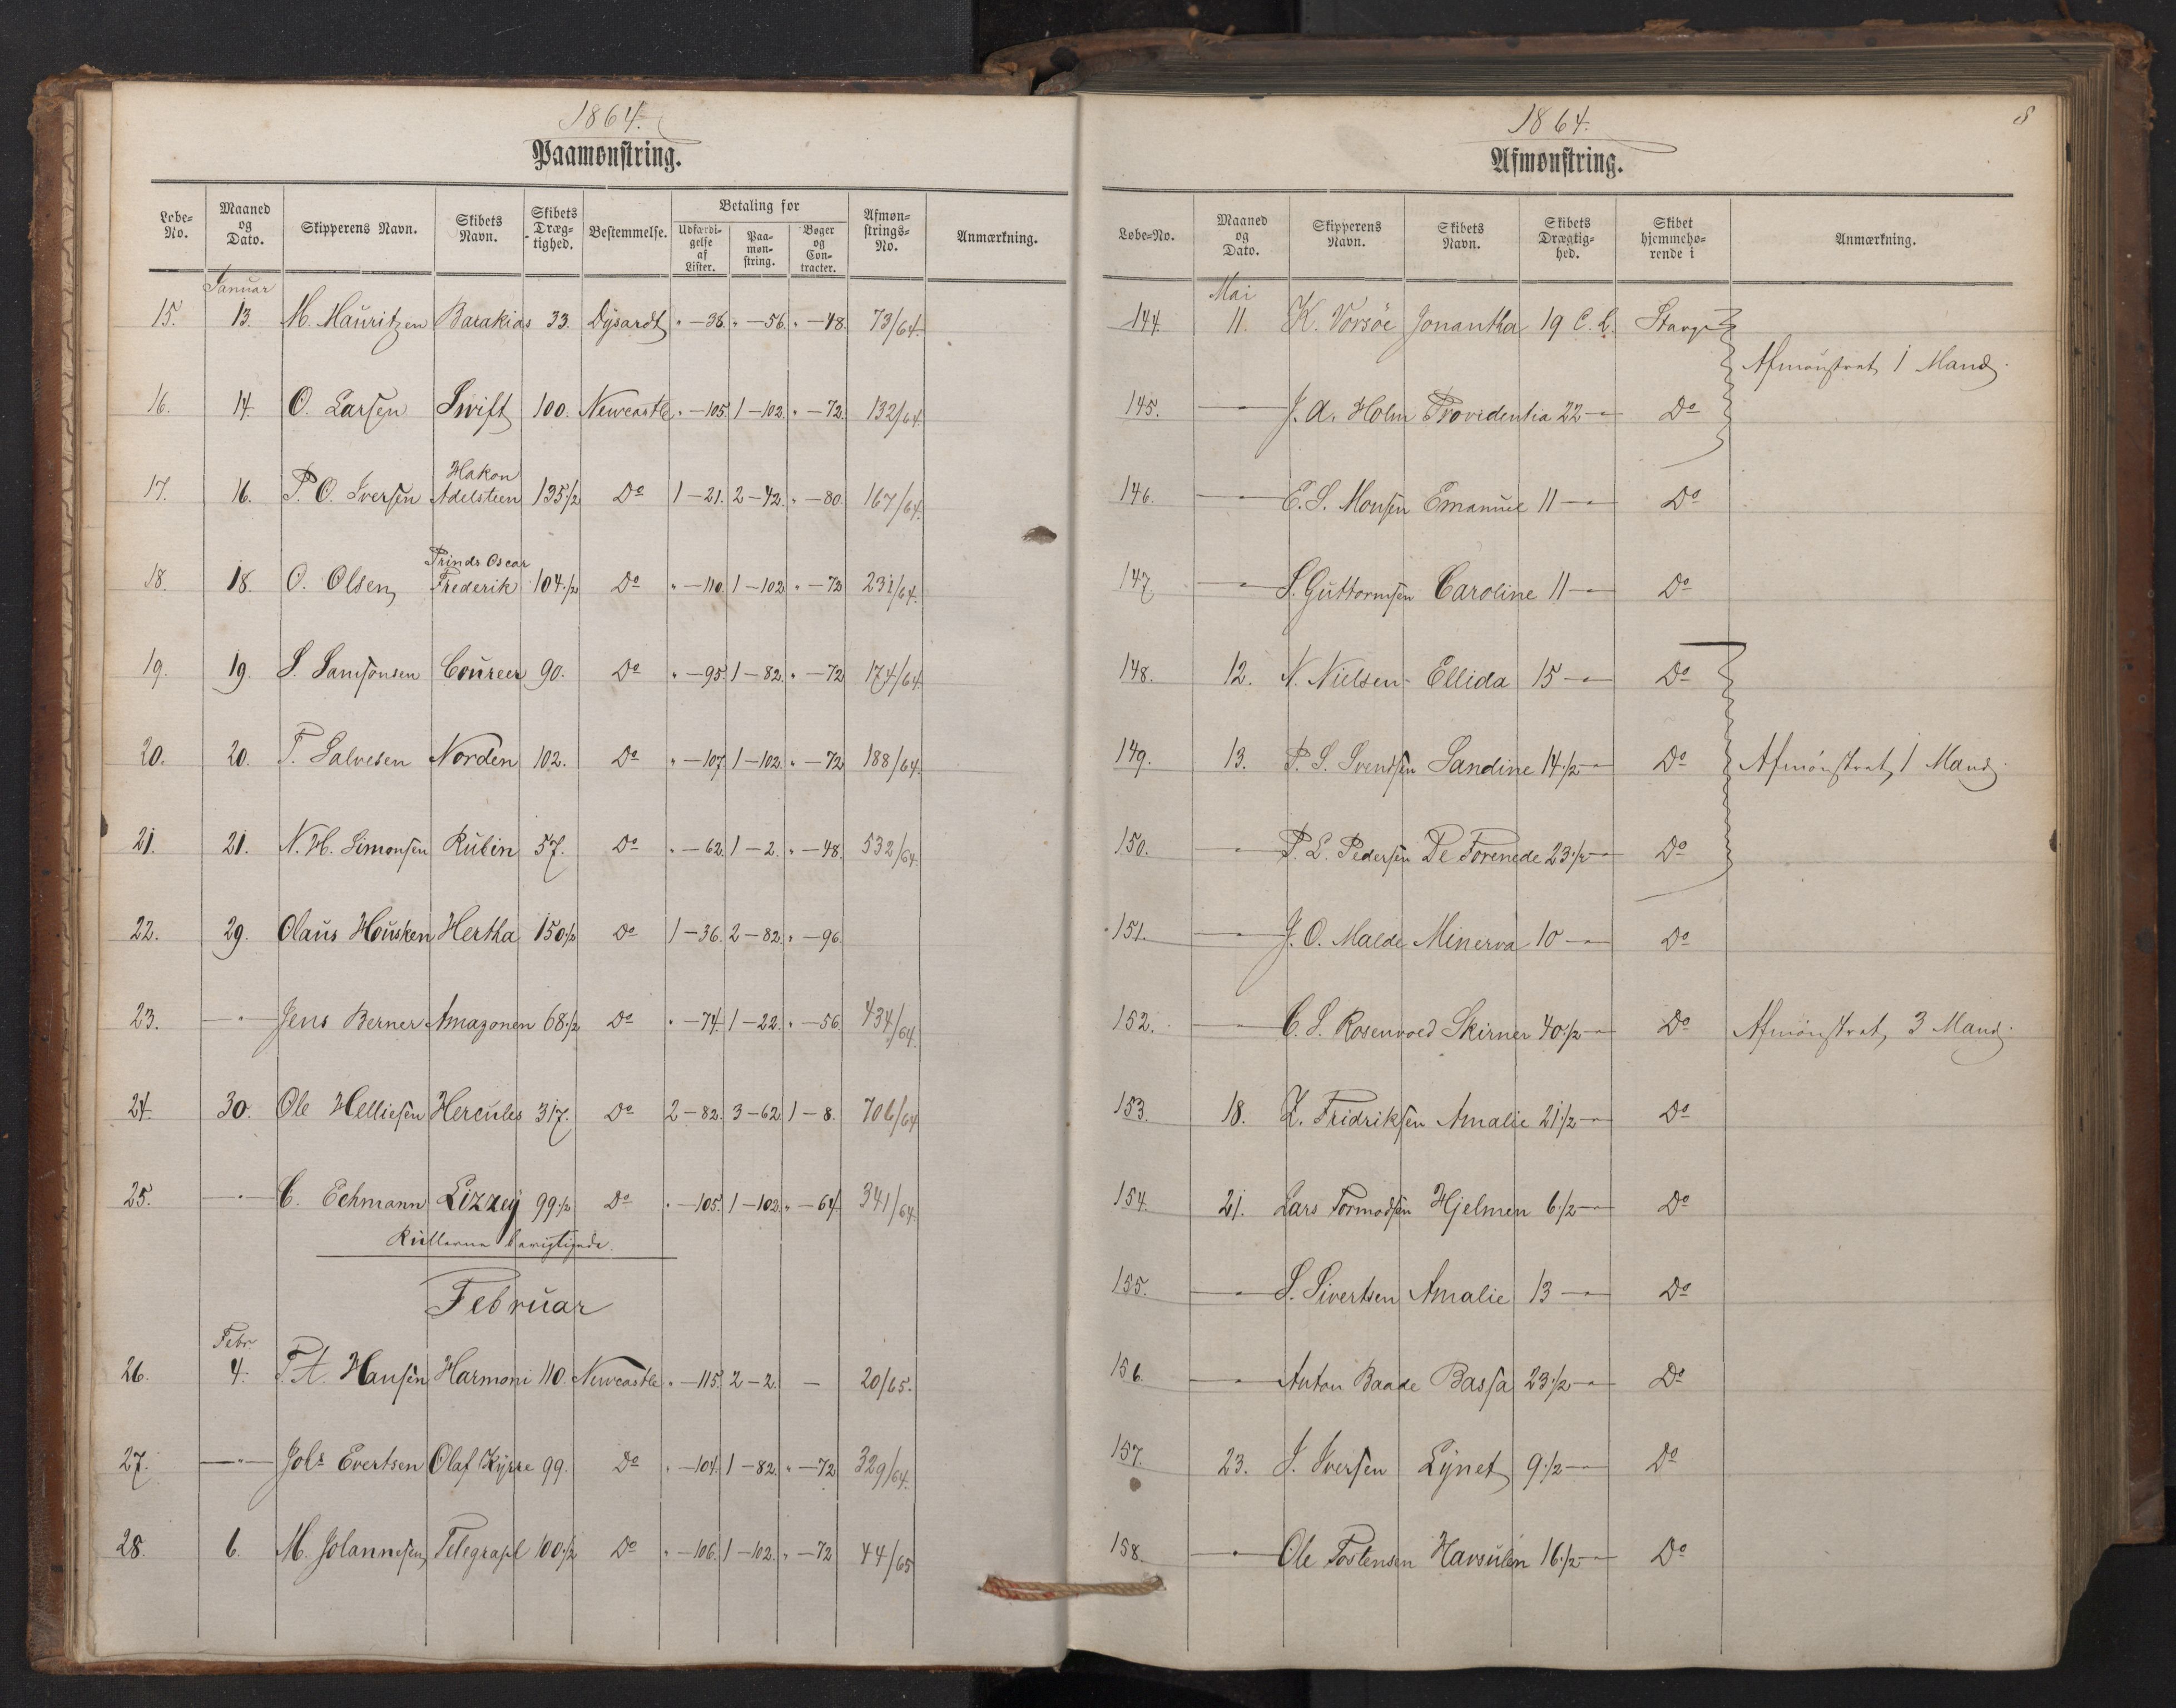 1864.
Paamønstring.
Løbe-No. Maaned og Dato. Skipperens Navn. Skibets Navn. Skibets Dræg-tighed. Bestemmelse. Betaling for Udfærdi-gelse af Lister. Paa-møn-string. Bøger og Con-tracter. Afmøn-strings-No. Anmærkning.
Januar
15. 13. M. Mauritzen Barakias 33. Dysardt " - 36. " - 56. " - 48. 73/64.
16. 14. O. Larsen Swift 100. Newcastle " - 105. 1 - 102. " - 72. 132/64.
17. 16. P. O. Iversen Hakon Adelsteen 135 1/2 Do 1 - 21. 2 - 42. " - 80. 167/64.
18. 18. O. Olsen Prinds Oscar Frederik 104 1/2 Do " - 110. 1 - 102. " - 72 231/64.
19. 19. S. Samsonsen Coureer 90. Do " - 95. 1 - 82. " - 72 174/64.
20. 20. T. Salvesen Norden 102. Do " - 107. 1 - 102. " - 72 188/64.
21. 21. N. H. Simonsen Rubin 57. Do " - 62. 1 - 2. " - 48. 532/64.
22. 29. Olaus Housken Hertha 150 1/2 Do 1 - 36. 2 - 82. " - 96.
23. — " — Jens Berner Amazonen 68 1/2 Do " - 74. 1 - 22. " - 56. 434/64.
24. 30. Ole Helliesen Hercules 317. Do 2 - 82. 3 - 62. 1 - 8. 706/64
25. — " — C. Echmann Lizzey 99 1/2 Do " - 105. 1 - 102. " - 64. 341/64.
Rullerne berigtigede.
Februar
Febr.
26. 4. T. A. Hansen Harmoni 110. Newcastle " - 115. 2 - 2. - 20/65.
27. — " — Johs Evertsen Olaf Kyrre 99. Do " - 104. 1 - 82. " - 72 329/64.
28. 6. M. Johannesen Telegraph 100 1/2 Do " - 106. 1 - 102. " - 72 44/65
1864.
8
Afmønstring.
Løbe-No. Maaned og Dato. Skipperens Navn. Skibets Navn. Skibets Drægtig-hed. Skibet hjemmehø-rende i Anmærkning.
Mai
144. 11. K. Vorsöe Jonantha 19 C. L. Stavgr
Afmønstret 1 Mand.
145. — " — J. A. Holm Providentia 22 — " — Do
146. — " — E. S. Monsen Emanuel 11 — " — Do
147. — " — S. Guttormsen Caroline 11 — " — Do
148. 12. N. Nielsen Ellida 15 — " — Do
149. 13. P. S. Svendsen Sandine 14 1/2 — " — Do Afmønstret 1 Mand.
150. — " — P. L. Pedersen De Forenede 23 1/2 — " — Do
151. — " — J. O. Malde Minerva 10 — " — Do
152. — " — C. S. Rosenvoed Skirner 40 1/2 — " — Do Afmønstret, 3 Mand.
153. 18. Z. Fridriksen Amalie 21 1/2 — " — Do
154. 21. Lars Tormodsen Hjelmen 6 1/2 — " — Do
155. — " — S. Sivertsen Amalie 13 — " — Do
156. — " — Anton Baade Bassa 23 1/2 — " — Do
157. 23. J. Iversen Lynet 9 1/2 — " — Do
158. — " — Ole Tostensen Havsulen 16 1/2 — " — Do